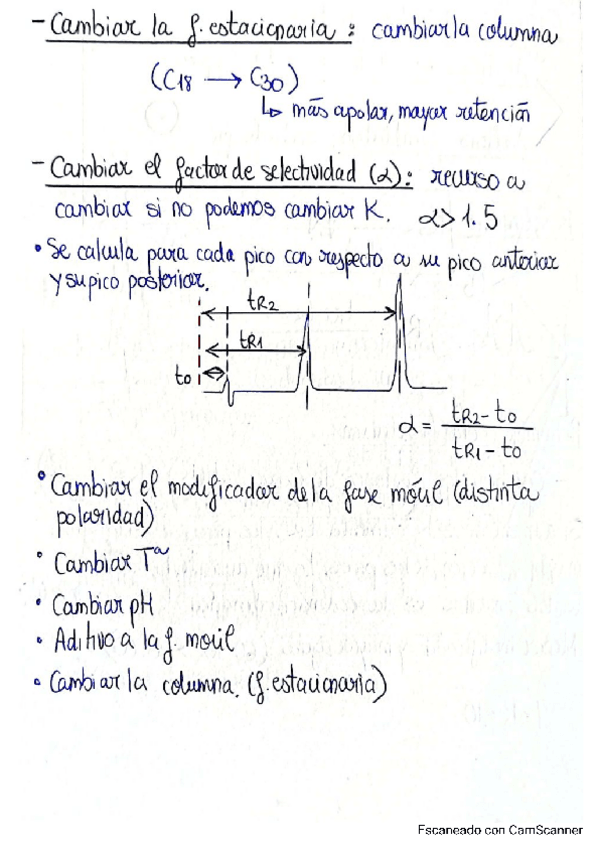 - Cambiar la f. estacionaria : cambiar la columna
(C18 → C30)
↳ más apolar, mayor retención
- Cambiar el factor de selectividad (α): recurso a
cambiar si no podemos cambiar K. α > 1.5
• Se calcula para cada pico con respecto a su pico anterior
y su pico posterior.
tR2
tR1
to
α = tR2 - to / tR1 - to
• Cambiar el modificador de la fase móvil (distinta
polaridad)
• Cambiar Tª
• Cambiar pH
• Aditivo a la f. movil
• Cambiar la columna. (f. estacionaria)
Escaneado con CamScanner